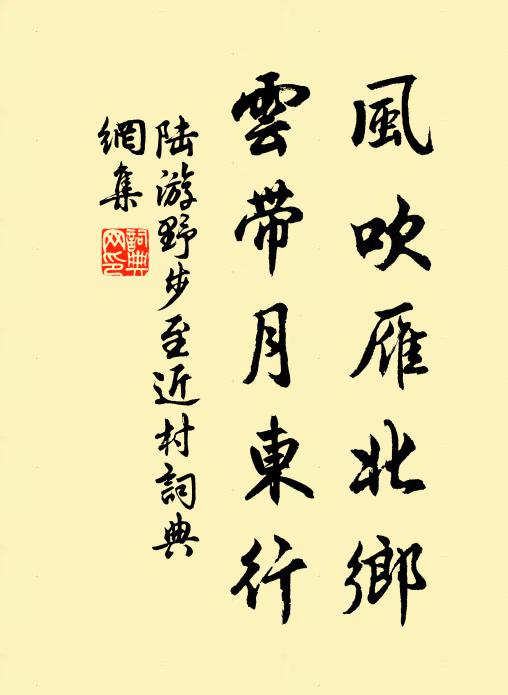 風吹雁北鄉
雲帶月東行
陸游野步至近村詞典
網集
詞典
网印